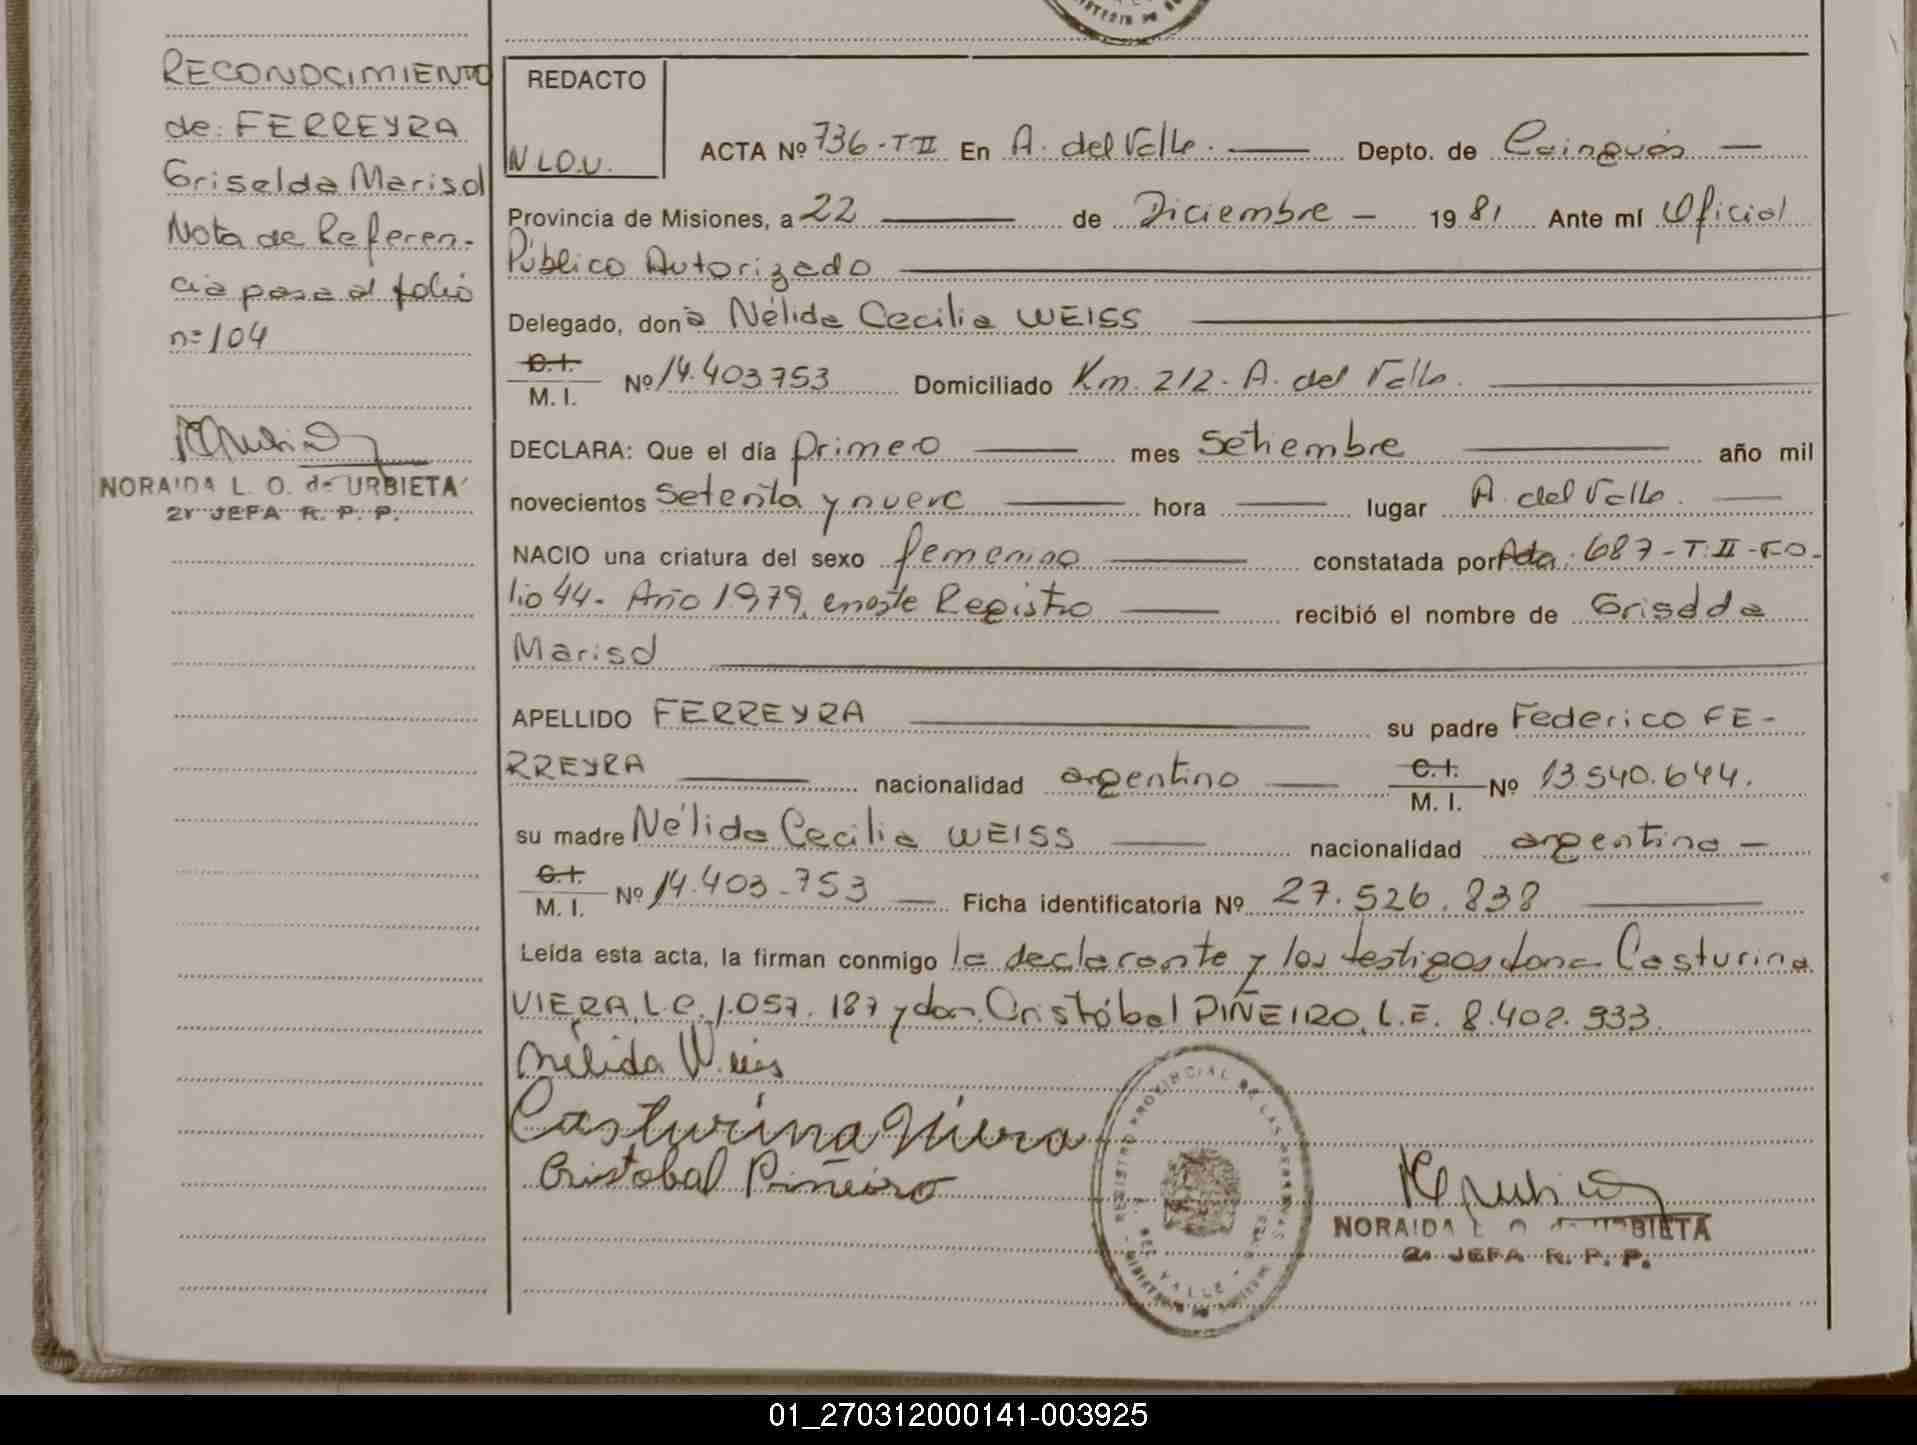 RECONOCIMIENTO
de: FERREYRA
Griselda Marisol
Nota de Referen-
cia pasa al folio
nº 104
NORAIDA L. O. de URBIETA
2ª JEFA R. P. P.
REDACTO
N L O. U.
ACTA Nº 736-T II En A. del Valle. Depto. de Cainguás
Provincia de Misiones, a 22 de Diciembre 1981 Ante mí Oficial
Público Autorizado
Delegado, don a Nélida Cecilia WEISS
C.I.
M. I. Nº 14.403.753 Domiciliado Km. 212- A. del Valle.
DECLARA: Que el día primero mes Setiembre año mil
novecientos setenta y nueve hora lugar A. del Valle.
NACIO una criatura del sexo femenino constatada por Acta. 687-T. II-FO-
lio 44- Año 1979, en este Registro recibió el nombre de Griselda
Marisol
APELLIDO FERREYRA su padre Federico FE-
RREYRA nacionalidad argentino C.I. M. I. Nº 13.540.644.
su madre Nélida Cecilia WEISS nacionalidad argentina
C.I.
M. I. Nº 14.403.753 Ficha identificatoria Nº 27.526.838
Leída esta acta, la firman conmigo la declarante y los testigos dona Casturina
VIERA, L.C. 1.057.187 y don Cristóbal PIÑEIRO, L.E. 8.402.933.
Nélida Weis
Casturina Viera
Cristobal Piñeiro
REGISTRO PROVINCIAL DE LAS PERSONAS
DEL VALLE
NORAIDA L. O. de URBIETA
2ª JEFA R. P. P.
01_270312000141-003925